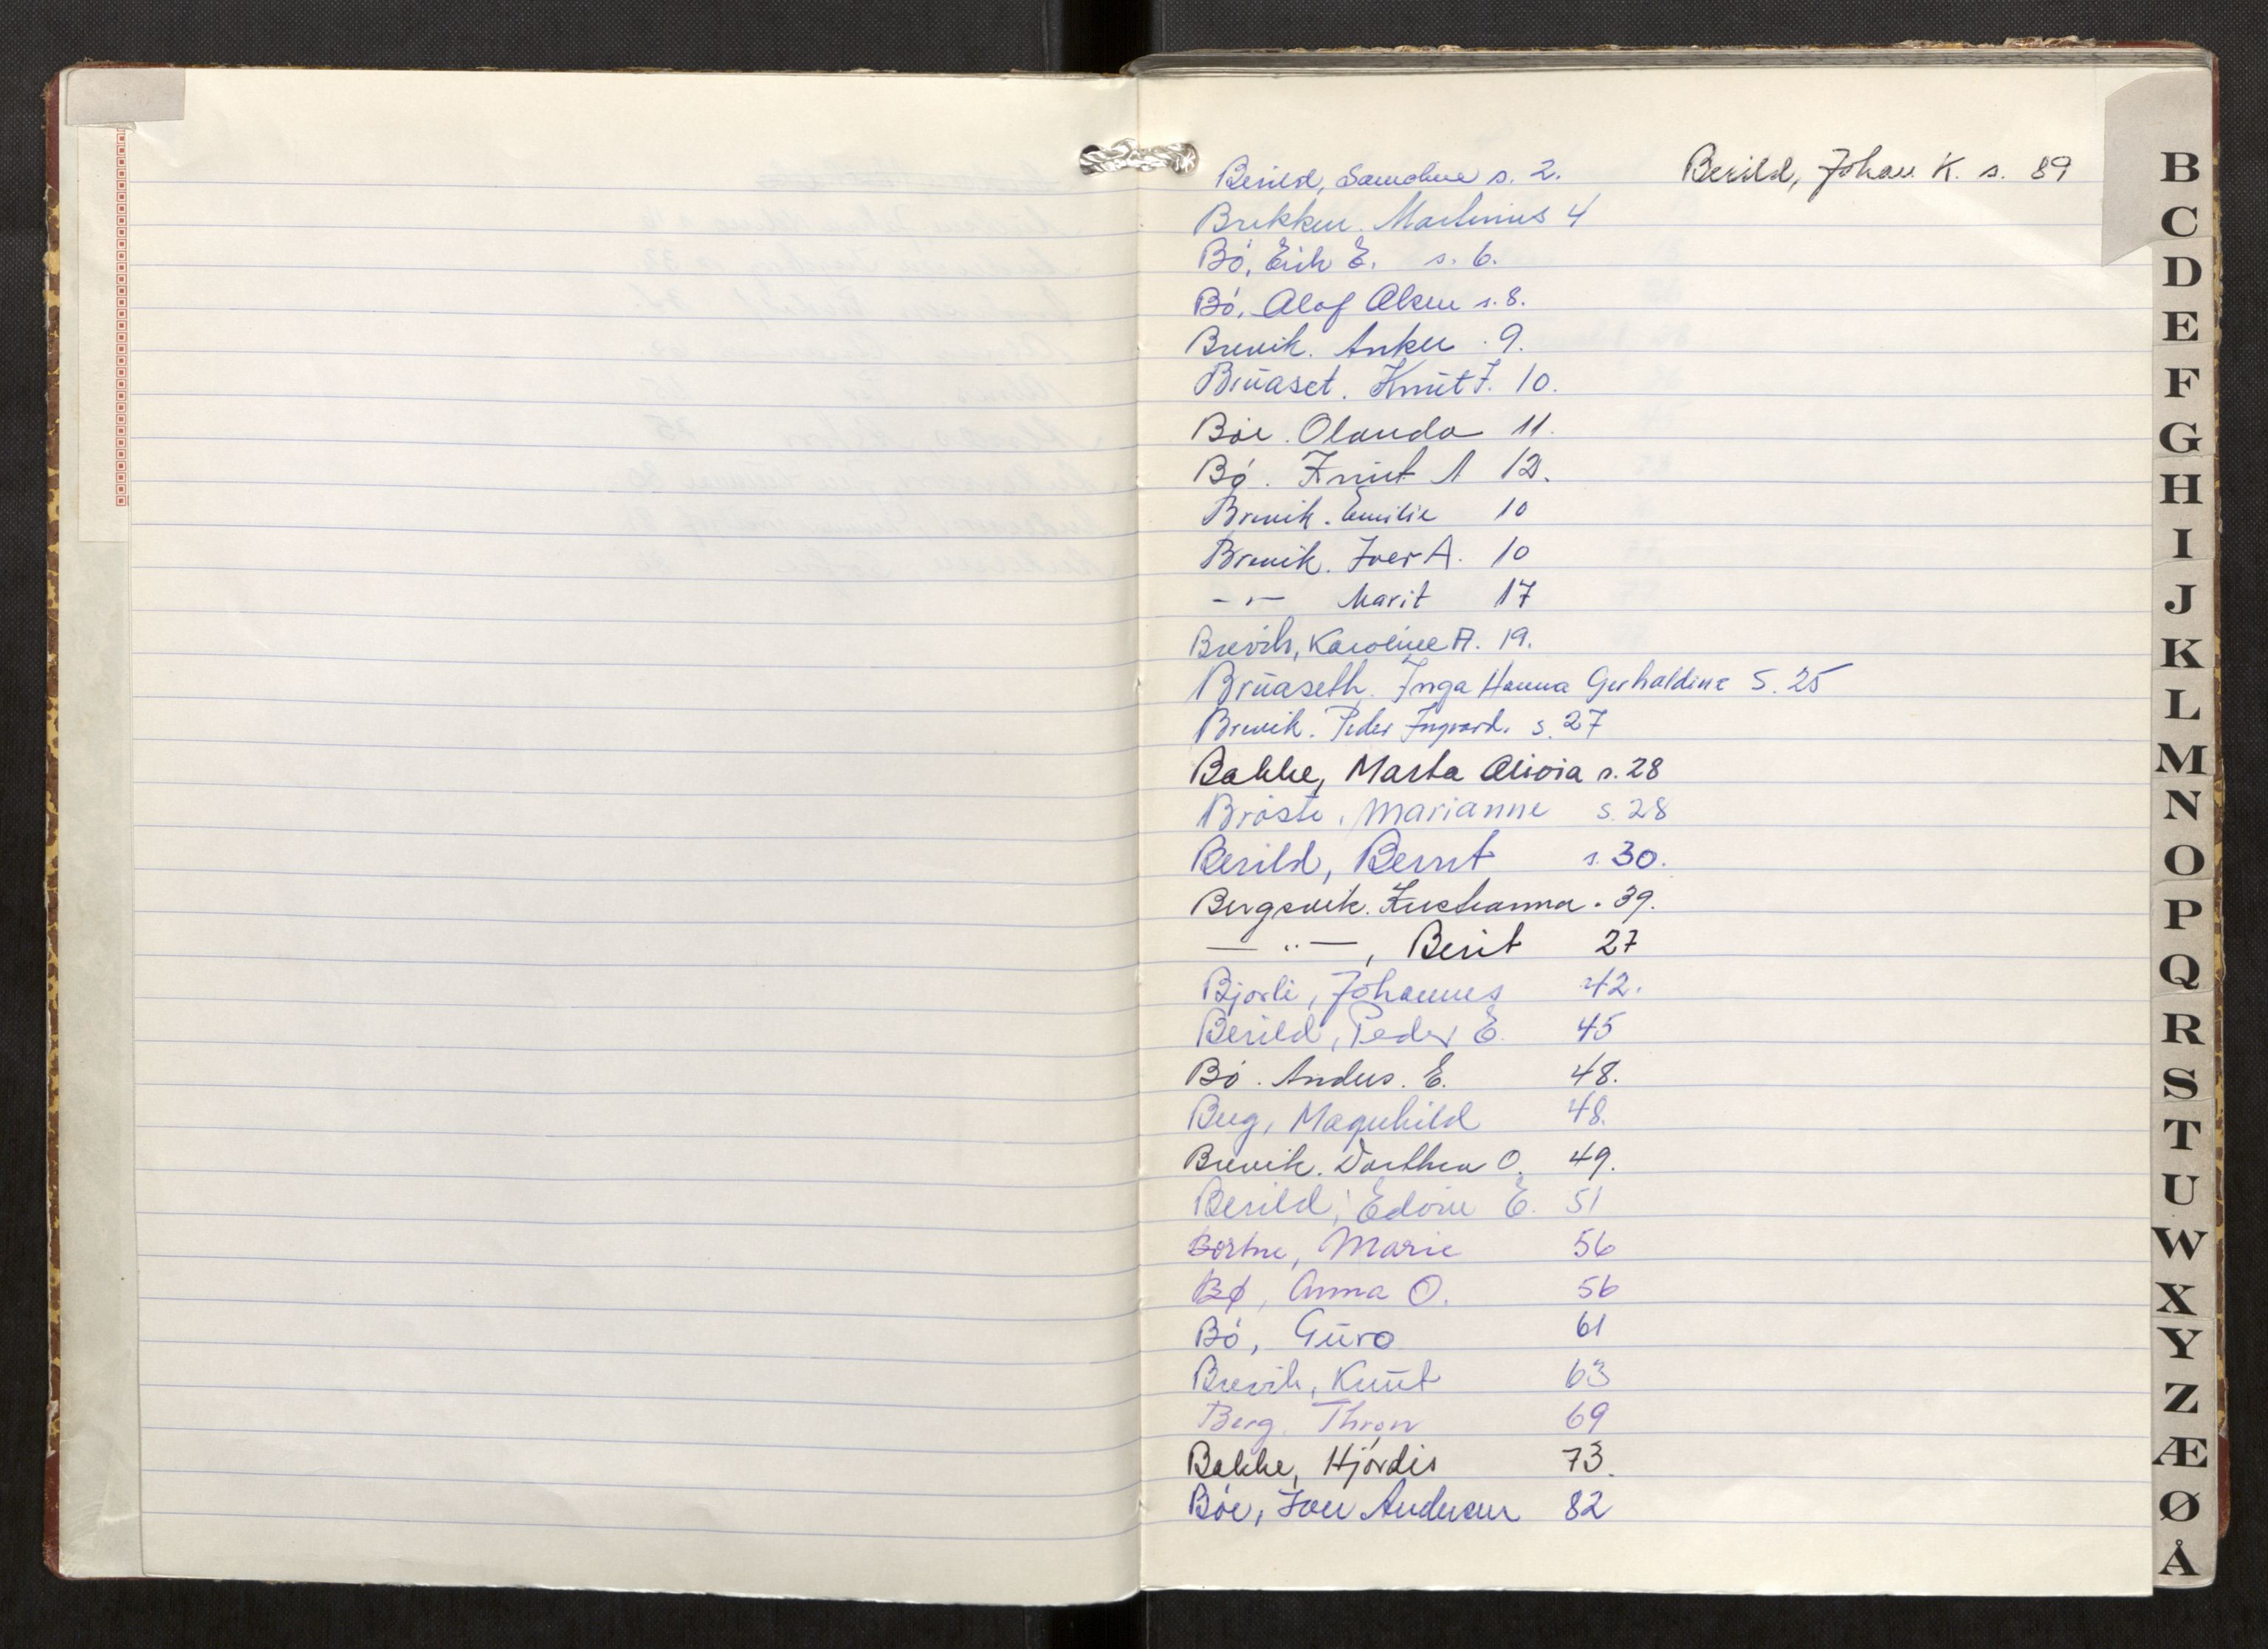 Berild, Samoline s. 2.
Berild, Johan K. s. 89
Brekken. Martinus 4
Bö, Erik E. s. 6.
Bö, Olaf Olsen s. 8.
Brevik. Anker . 9.
Bruaset. Knut J. 10.
Böe. Olanda 11.
Bö. Knut A 12.
Brevik. Emilie 10
Brevik. Iver A. 10
- " - Marit 17
Brevik, Karoline A. 19.
Bruaseth. Inga Hanna Gerhaldine S. 25
Brevik. Peder Ingvard. s. 27
Bakke, Marta Olivia s. 28
Bröste, Marianne s. 28
Berild, Bernt s. 30.
Bergsvik. Kristianna . 39.
— " —, Berit 27
Bjorli, Johannes 42.
Berild, Peder E. 45
Bö. Anders. E. 48.
Berg, Magnhild 48.
Brevik. Dorthea O. 49.
Berild, Edvin E. 51
Bortne, Marie 56
Bø, Anna O. 56
Bö, Guro 61
Brevik, Knut 63
Berg, Thron 69
Bakke, Hjördis 73.
Böe, Iver Andersen 82
B
C
D
E
F
G
H
I
J
K
L
M
N
O
P
Q
R
S
T
U
W
X
Y
Z
Æ
Ø
Å